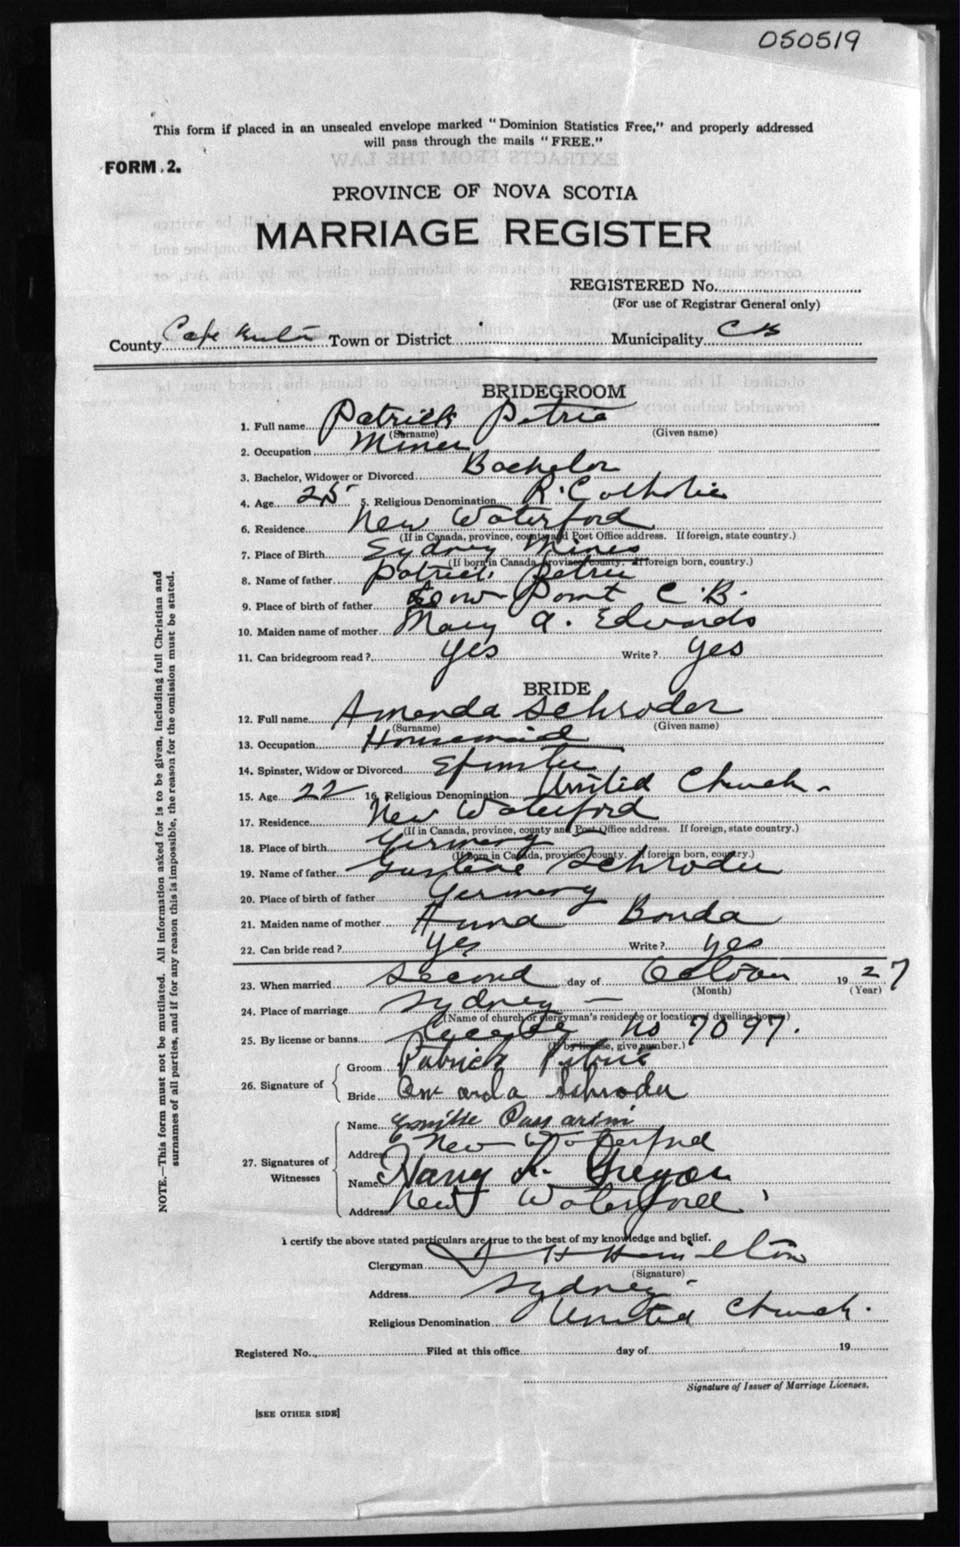 050519
This form if placed in an unsealed envelope marked "Dominion Statistics Free," and properly addressed
will pass through the mails "FREE."
FORM 2.
PROVINCE OF NOVA SCOTIA
MARRIAGE REGISTER
REGISTERED No.
(For use of Registrar General only)
County Cape Town or District Municipality CB
BRIDEGROOM
1. Full name Patrick Petrie
(Surname) (Given name)
2. Occupation Miner
3. Bachelor, Widower or Divorced Bachelor
4. Age 25 5. Religious Denomination R. Catholic
6. Residence New Waterford
(If in Canada, province, county and Post Office address. If foreign, state country.)
7. Place of Birth Sydney Mines
(If born in Canada, province, county. If foreign born, country.)
8. Name of father Patrick Petrie
9. Place of birth of father Low Point C.B.
10. Maiden name of mother Mary A. Edwards
11. Can bridegroom read? Yes Write? Yes
BRIDE
12. Full name Amanda Schroder
(Surname) (Given name)
13. Occupation Housemaid
14. Spinster, Widow or Divorced Spinster
15. Age 22 16. Religious Denomination United Church.
17. Residence New Waterford
(If in Canada, province, county and Post Office address. If foreign, state country.)
18. Place of birth Germany
(If born in Canada, province, county. If foreign born, country.)
19. Name of father Gustave Schroder
20. Place of birth of father Germany
21. Maiden name of mother Anna Bonda
22. Can bride read? Yes Write? Yes
23. When married Second day of October 1927
(Month) (Year)
24. Place of marriage Sydney —
(Name of church or clergyman's residence or location of dwelling-house)
25. By license or banns License No 7097.
(If by license, give number.)
26. Signature of
Groom Patrick Petrie
Bride Amanda Schroder
27. Signatures of Witnesses
Name Passarini
Address New Waterford
Name Harry Gregor
Address New Waterford
I certify the above stated particulars are true to the best of my knowledge and belief.
Clergyman J H Hamilton
(Signature)
Address Sydney.
Religious Denomination United Church.
Registered No. Filed at this office day of 19
Signature of Issuer of Marriage Licenses.
[SEE OTHER SIDE]
NOTE.—This form must not be mutilated. All information asked for is to be given, including full Christian and
surnames of all parties, and if for any reason this is impossible, the reason for the omission must be stated.